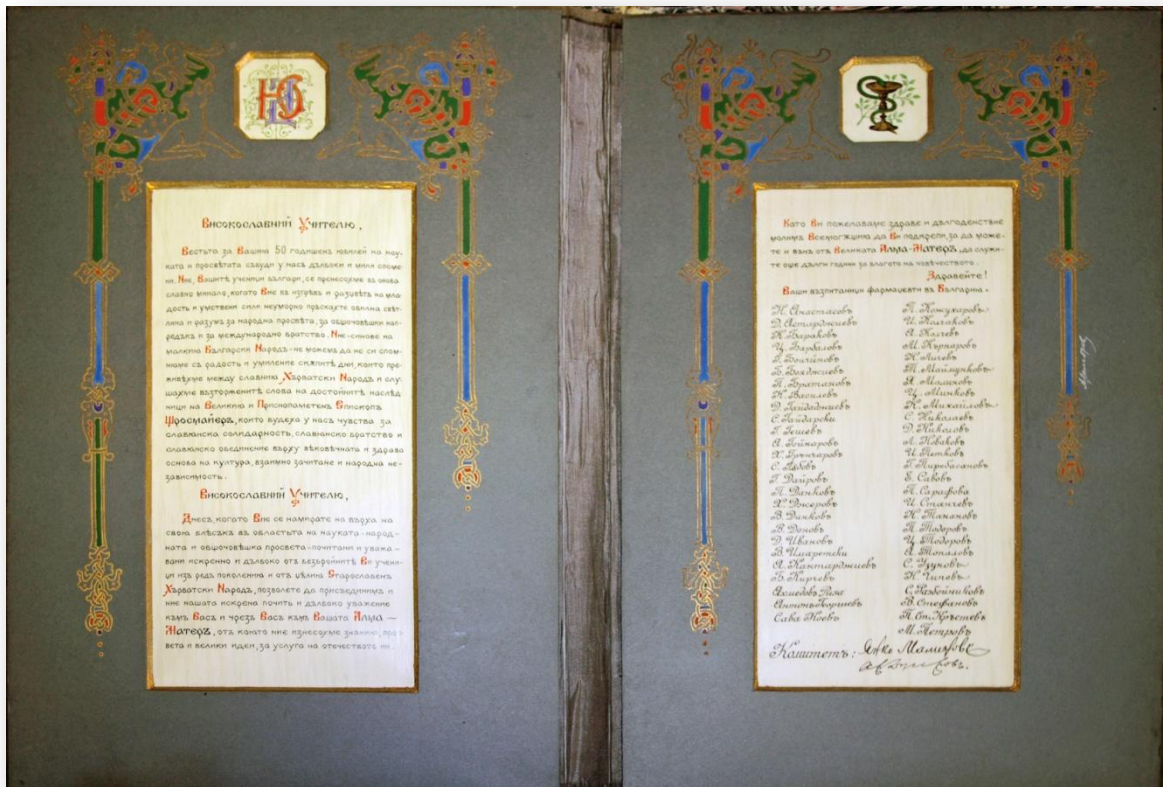 Високославний Учителю,
Вестьта за Вашия 50 годишенъ юбилей на нау-
ката и просвѣтата събуди у насъ дълбоки и мили споме-
ни. Ние, Вашитѣ ученици българи, се пренесохме въ онова
славно минало, когато Вие въ изгрѣвъ и разцвѣтъ на мла-
дость и умствени сили неуморно пръскахте обилна свѣт-
лина и разумъ за народна просвѣта, за общочовѣшки нап-
редъкъ и за международно братство. Ние-синове на
малкия Български Народъ-не можемъ да не си спом-
нюме съ радость и умиление скѫпитѣ дни, които пре-
живѣхме между славния Хърватски Народъ и слу-
шахме възторженитѣ слова на достойнитѣ наслѣд
ници на Великия и Приснопаметенъ Епископъ
Щросмайеръ, които будеха у насъ чувства за
славянска солидарность, славянско братство и
славянско обединение върху вѣковѣчната и здрава
основа на култура, взаимно зачитане и народна не-
зависимость.
Високославний Учителю,
Днесъ, когато Вие се намирате на върха на
своя влѣзъкъ въ областьта на науката-народ-
ната и общочовѣшка просвета-почитани и уважа-
вани искренно и дълбоко отъ безбройнитѣ Ви учени-
ци изъ редъ поколения и отъ цѣлия Старославенъ
Хърватски Народъ, позволете да присъединимъ и
ние нашата искрена почить и дълбоко уважение
къмъ Васъ и чрезъ Васъ къмъ Вашата Алма —
Матеръ, отъ която ние изнесохме знания,
вета и велики идеи, за услуга на отечеството ни.
Като Ви пожелаваме здраве и дълголенствие
молимъ Всемогѫщия да Ви подкрепи, за да може-
те и вънъ отъ Великата Алма-Матеръ, да служи-
те още дълги години за благото на човѣчеството.
Здравейте!
Ваши възпитаници фармацевти въ България.
Н. Анастасовъ
Д. Астарджиевъ
Н. Бараковъ
Ц. Барбаловъ
Г. Бончиновъ
Б. Бояджиевъ
П. Братановъ
Н. Василевъ
Д. Гайдаджиевъ
С. Гайдарски
Г. Гешевъ
А. Гойнаровъ
Х. Грънчаровъ
С. Гѫбовъ
Г. Даировъ
П. Данковъ
Х. Джеровъ
В. Динковъ
В. Доновъ
Д. Ивановъ
В. Имаретски
А. Кантарджиевъ
Б. Кирчевъ
Ахмедовъ Рама
Антонъ Георгиевъ
Сава Ноевъ
П. Кожухаровъ
И. Колчаковъ
А. Костевъ
М. Кърпаровъ
Н. Личевъ
М. Маймунковъ
Я. Малиновъ
Ц. Минковъ
К. Михайловъ
С. Николаевъ
Д. Николовъ
Л. Новаковъ
И. Петковъ
Г. Пиребасановъ
Е. Савовъ
П. Сарафова
И. Станчевъ
Н. Танановъ
П. Тодоровъ
Ц. Тодоровъ
А. Топаловъ
С. Узуновъ
Н. Чиповъ
С. Разбойниковъ
В. Стефановъ
П. Ст. Кръстевъ
М. Петровъ
Комитетъ: